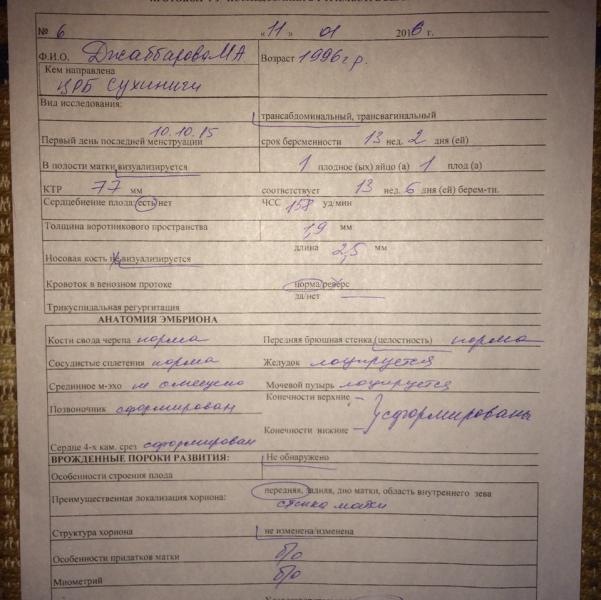 № 6 «11» 01 2016 г.
Ф.И.О. Джаббарова МА Возраст 1996 г р.
Кем направлена
ЦРБ Сухиничи
Вид исследования:
трансабдоминальный, трансвагинальный
Первый день последней менструации 10.10.15 срок беременности 13 нед. 2 дня (ей)
В полости матки визуализируется 1 плодное (ых) яйцо (а) 1 плод (а)
КТР 77 мм соответствует 13 нед. 6 дня (ей) берем-ти.
Сердцебиение плода: есть/нет ЧСС 158 уд/мин
Толщина воротникового пространства 1,9 мм
Носовая кость не визуализируется длина 2,5 мм
Кровоток в венозном протоке норма/реверс
да/нет
Трикуспидальная регургитация
АНАТОМИЯ ЭМБРИОНА
Кости свода черепа норма Передняя брюшная стенка (целостность) норма
Сосудистые сплетения норма Желудок лоцируется
Срединное м-эхо не смещено Мочевой пузырь лоцируется
Позвоночник сформирован Конечности верхние – сформированы
Конечности нижние –
Сердце 4-х кам. срез сформирован
ВРОЖДЕННЫЕ ПОРОКИ РАЗВИТИЯ: Не обнаружено
Особенности строения плода
Преимущественная локализация хориона: передняя, задняя, дно матки, область внутреннего зева
стенка матки
Структура хориона не изменена/изменена
Особенности придатков матки б/о
Миометрий б/о